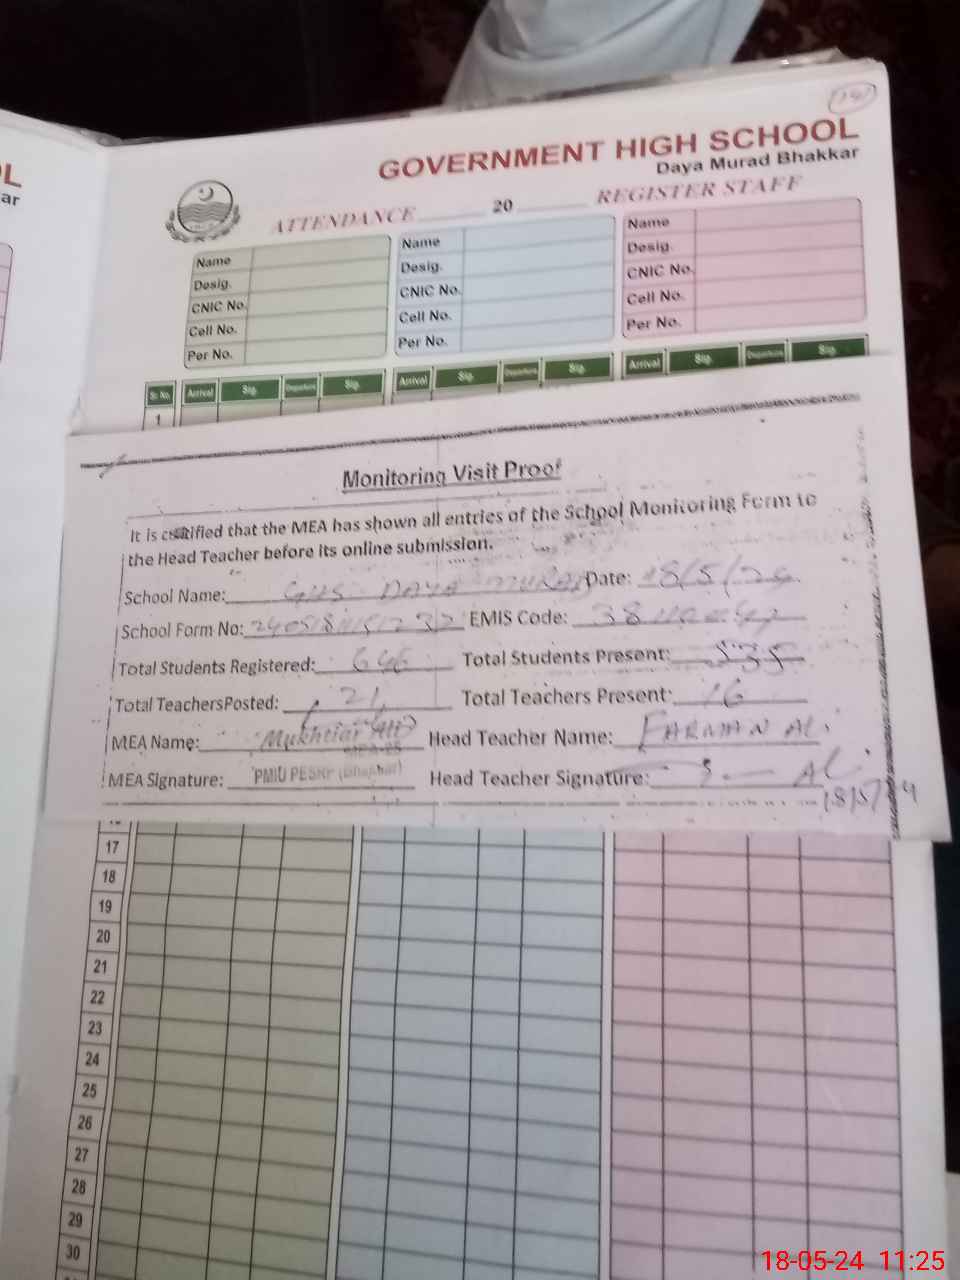 GOVERNMENT HIGH SCHOOL
Daya Murad Bhakkar
ATTENDANCE 20 REGISTER STAFF
Name
Desig.
CNIC No.
Cell No.
Per No.
Name
Desig.
CNIC No.
Cell No.
Per No.
Name
Desig.
CNIC No.
Cell No.
Per No.
Sr. No. Arrival Sig. Departure Sig. Arrival Sig. Departure Sig. Arrival Sig. Departure Sig.
1
Monitoring Visit Proof
It is certified that the MEA has shown all entries of the School Monitoring Form to
the Head Teacher before its online submission.
School Name: GHS DAYA MURAD Date: 18/5/24
School Form No: EMIS Code:
Total Students Registered: 646 Total Students Present: 535
Total TeachersPosted: 21 Total Teachers Present: 16
MEA Name: Mukhtiar Ali Head Teacher Name: FARMAN ALI
MEA-25
MEA Signature: PMIU PESRP (Bhakkar) Head Teacher Signature:
18/5/24
17
18
19
20
21
22
23
24
25
26
27
28
29
30
18-05-24 11:25